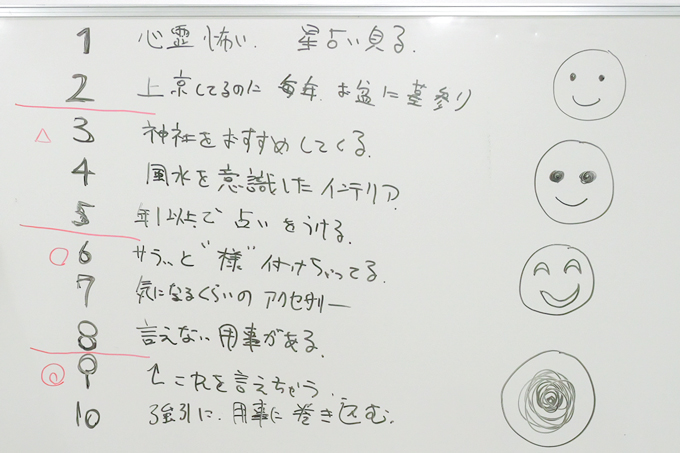 1 心霊怖い. 星占い見る.
2 上京してるのに 毎年. お盆に墓参り
△ 3 神社をおすすめしてくる.
4 風水を意識したインテリア.
5 年1以上で占いをうける.
○ 6 サラッと"様"付けちゃってる.
7 気になるくらいの アクセサリー
8 言えない用事がある.
◎ 9 ↑これを言えちゃう.
10 強引に.用事に巻き込む.